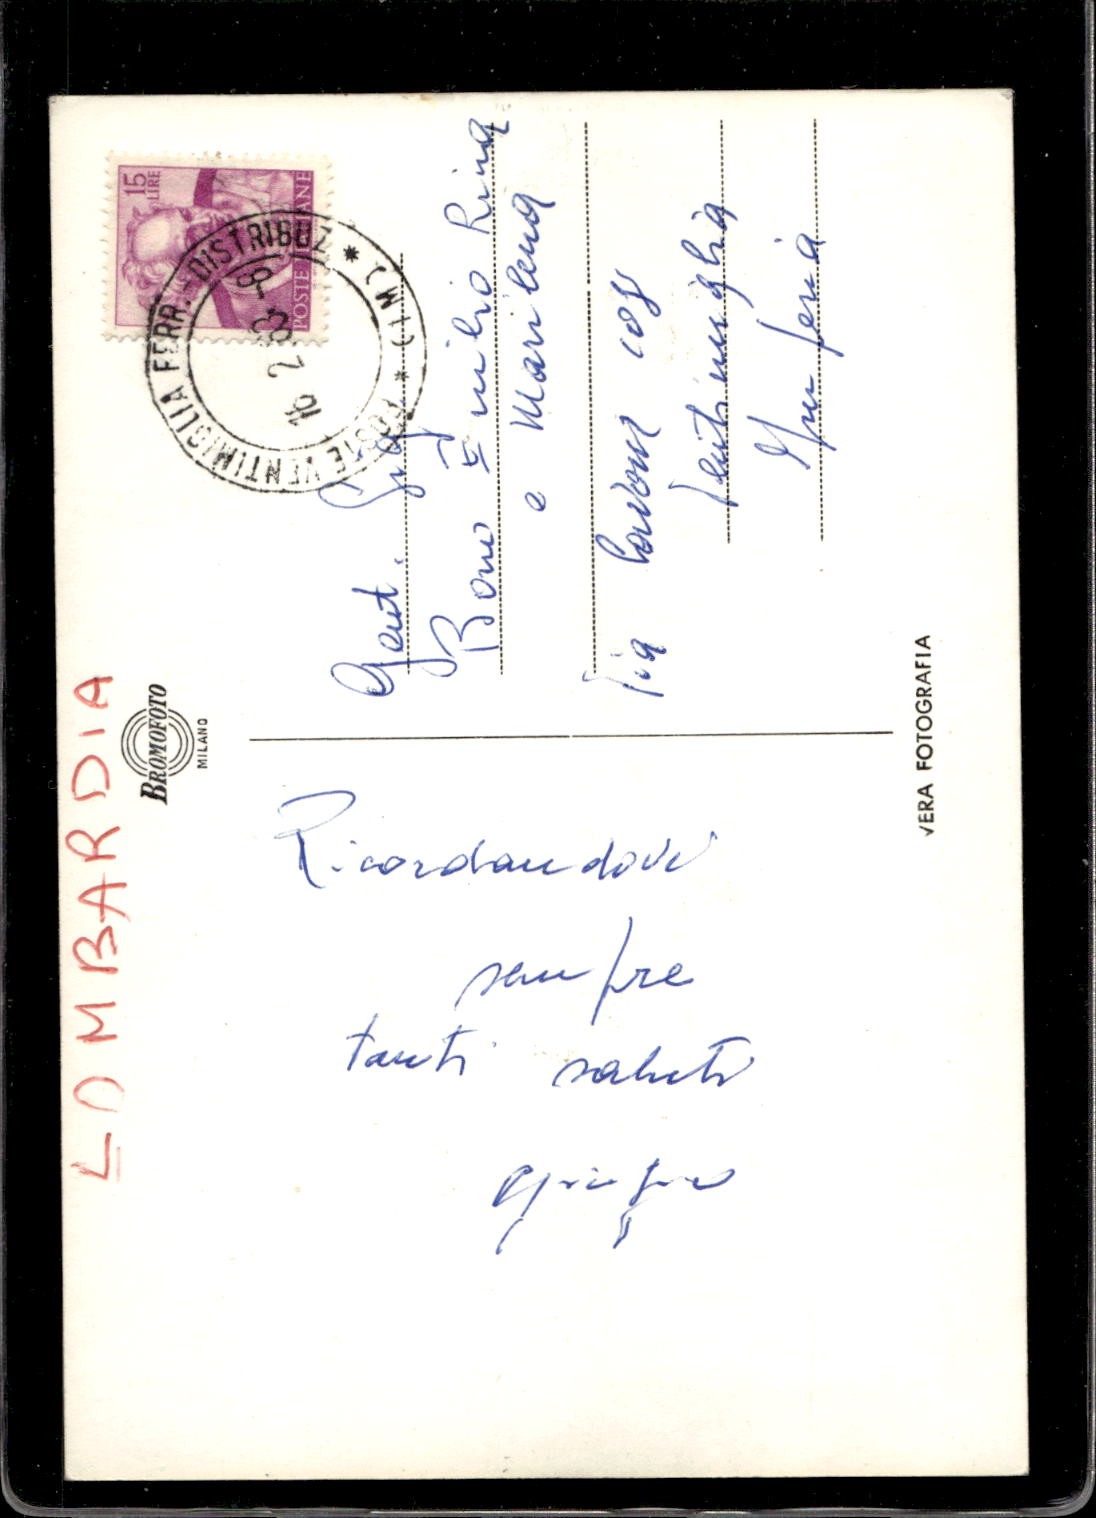 LOMBARDIA
BROMOFOTO
MILANO
Ricordandovi
sempre
tanti saluti
15
LIRE
POSTE ITALIANE
POSTE VENTIMIGLIA FERR. - DISTRIBUZ * (IM) *
Gent. Sig
Bono Emilio Rina
e Marilena
Via Cavour
Ventimiglia
Imperia
VERA FOTOGRAFIA